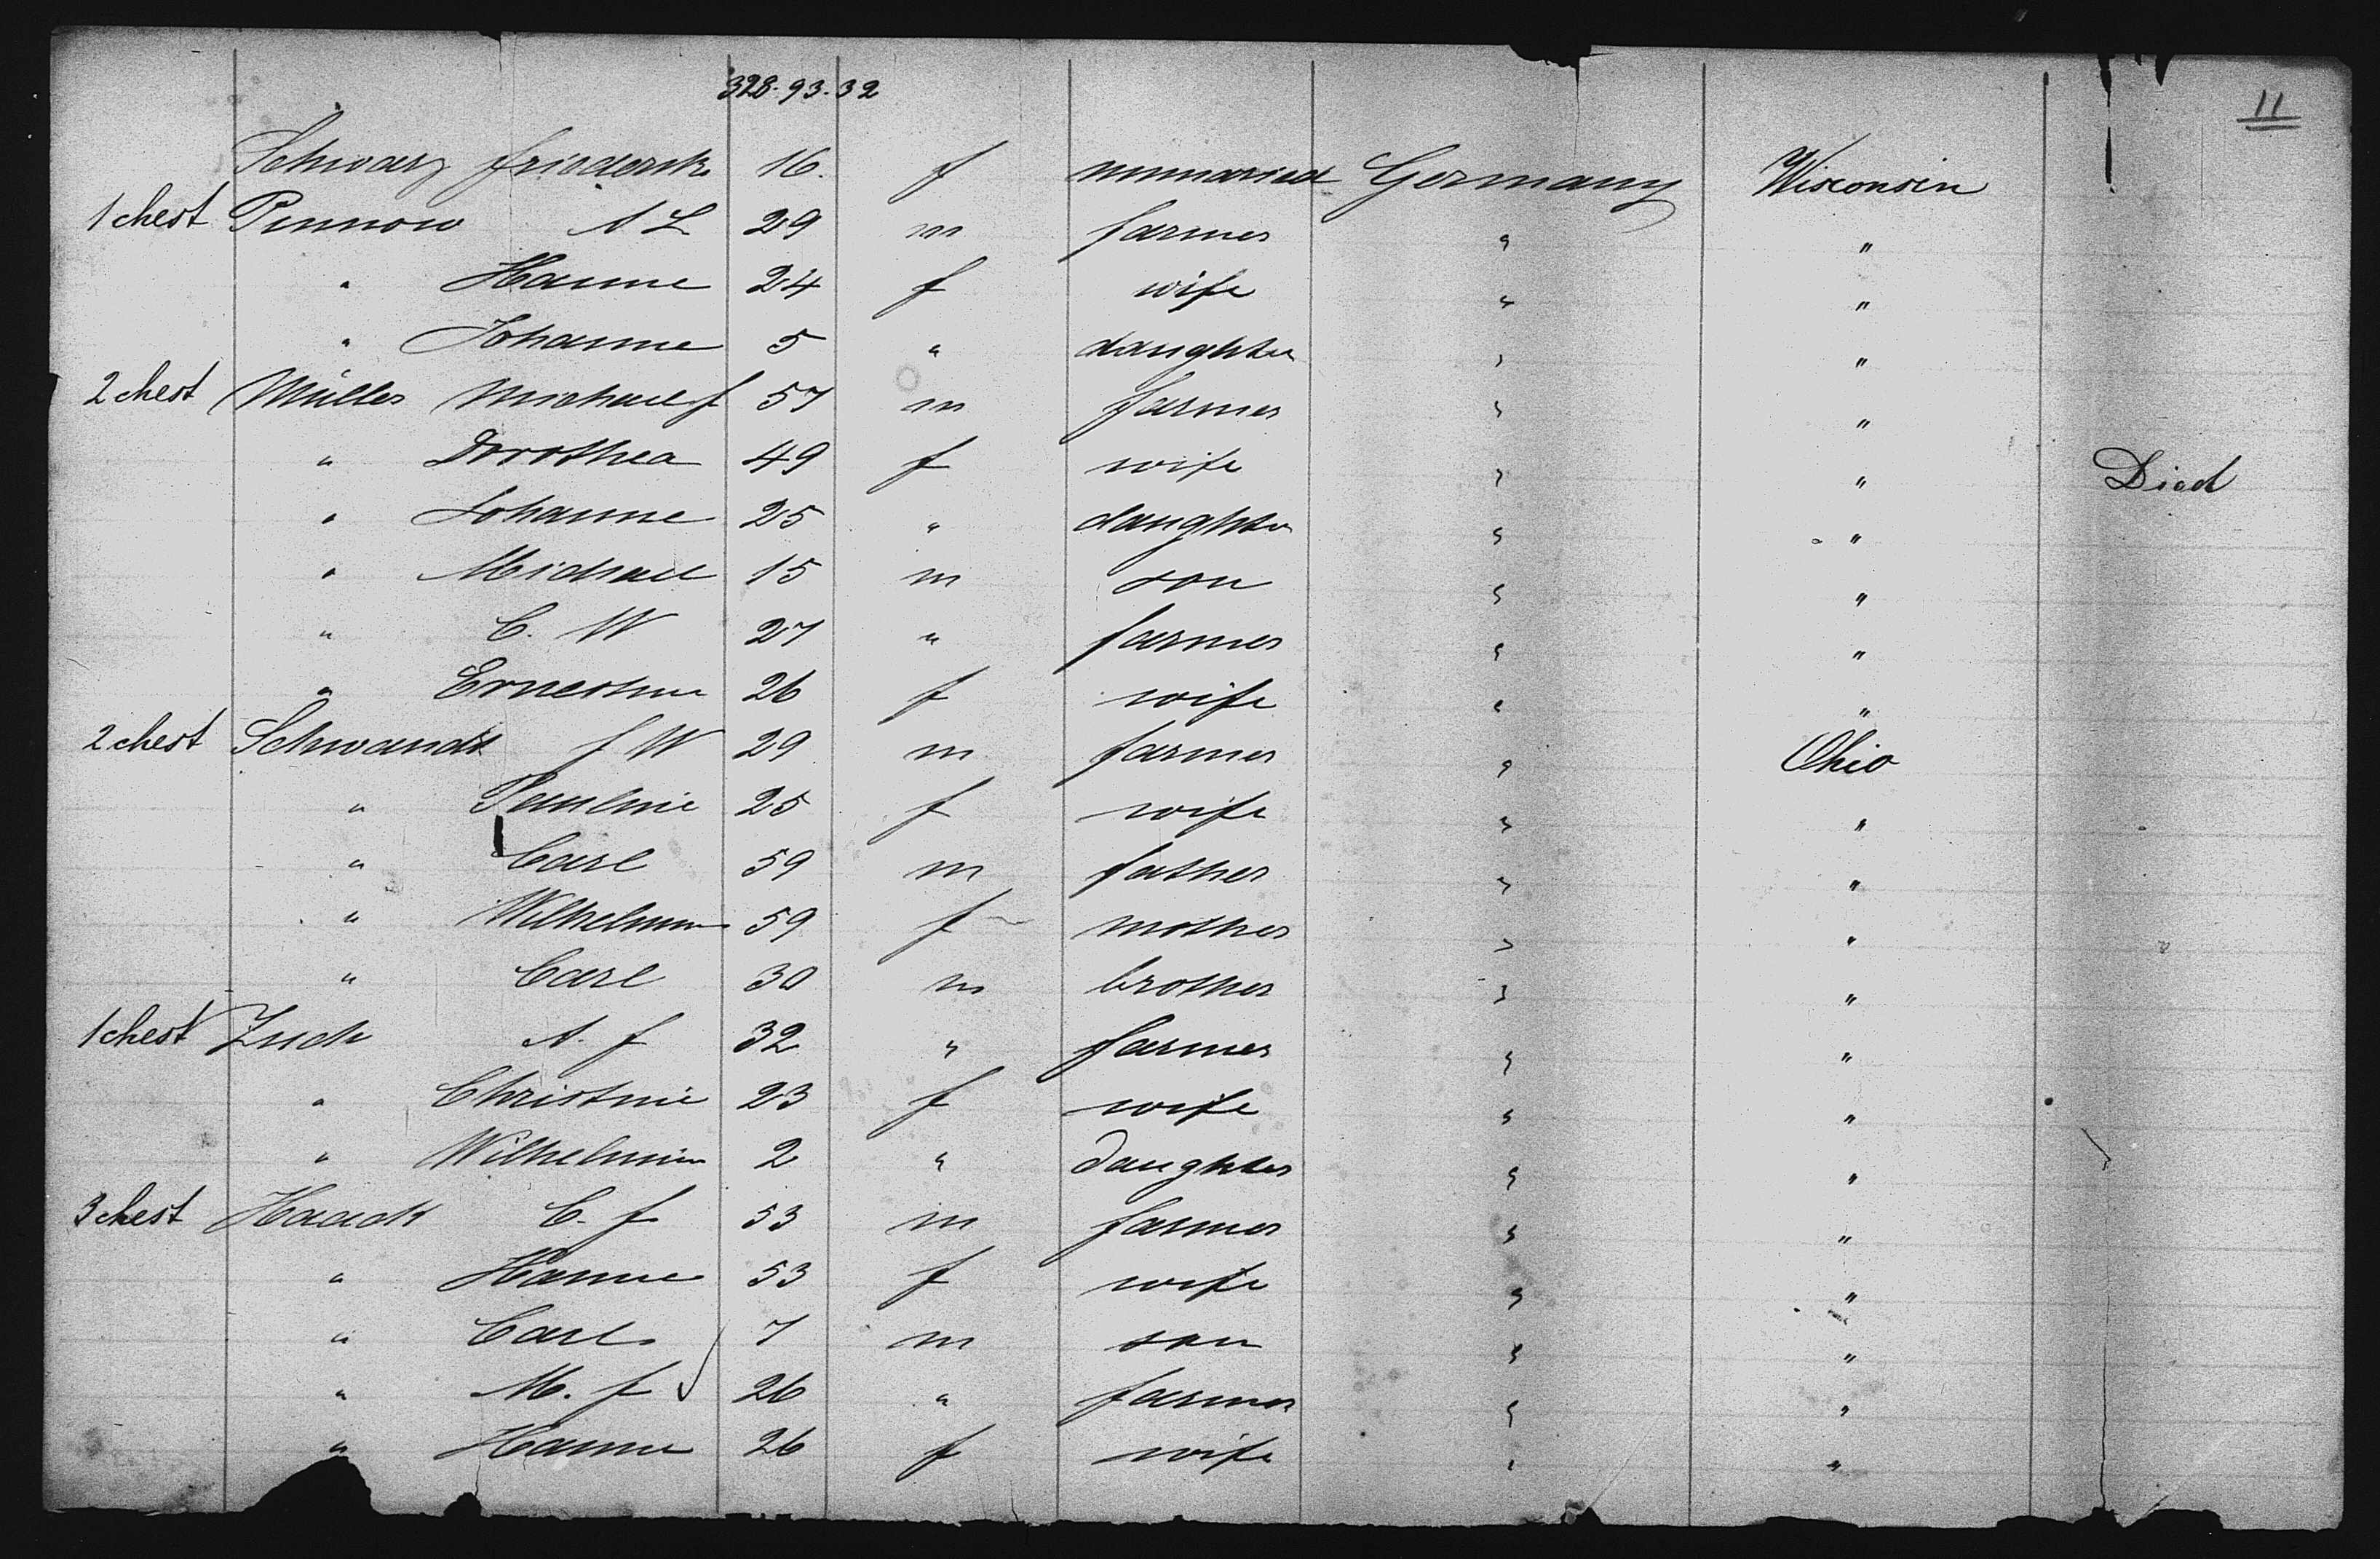 328.93.32
11
Schwarz Friederike 16. f unmarried Germany Wisconsin
1 chest Pinnow A L 29 m farmer " "
" Hanne 24 f wife " "
" Johanne 5 " daughter " "
2 chest Müller Michael f 57 m farmer " "
" Dorothea 49 f wife " " Died
" Johanne 25 " daughter " "
" Michael 15 m son " "
" C. W 27 " farmer " "
" Ernestine 26 f wife " "
2 chest Schwandt f W 29 m farmer " Ohio
" Pauline 25 f wife " "
" Carl 59 m father " "
" Wilhelmine 59 f mother " "
" Carl 30 m brother " "
1 chest Zuch A. f 32 " farmer " "
" Christine 23 f wife " "
" Wilhelmine 2 " daughter " "
3 chest Haack C. f 53 m farmer " "
" Hanne 53 f wife " "
" Carl 7 m son " "
" M. f 26 " farmer " "
" Hanne 26 f wife " "